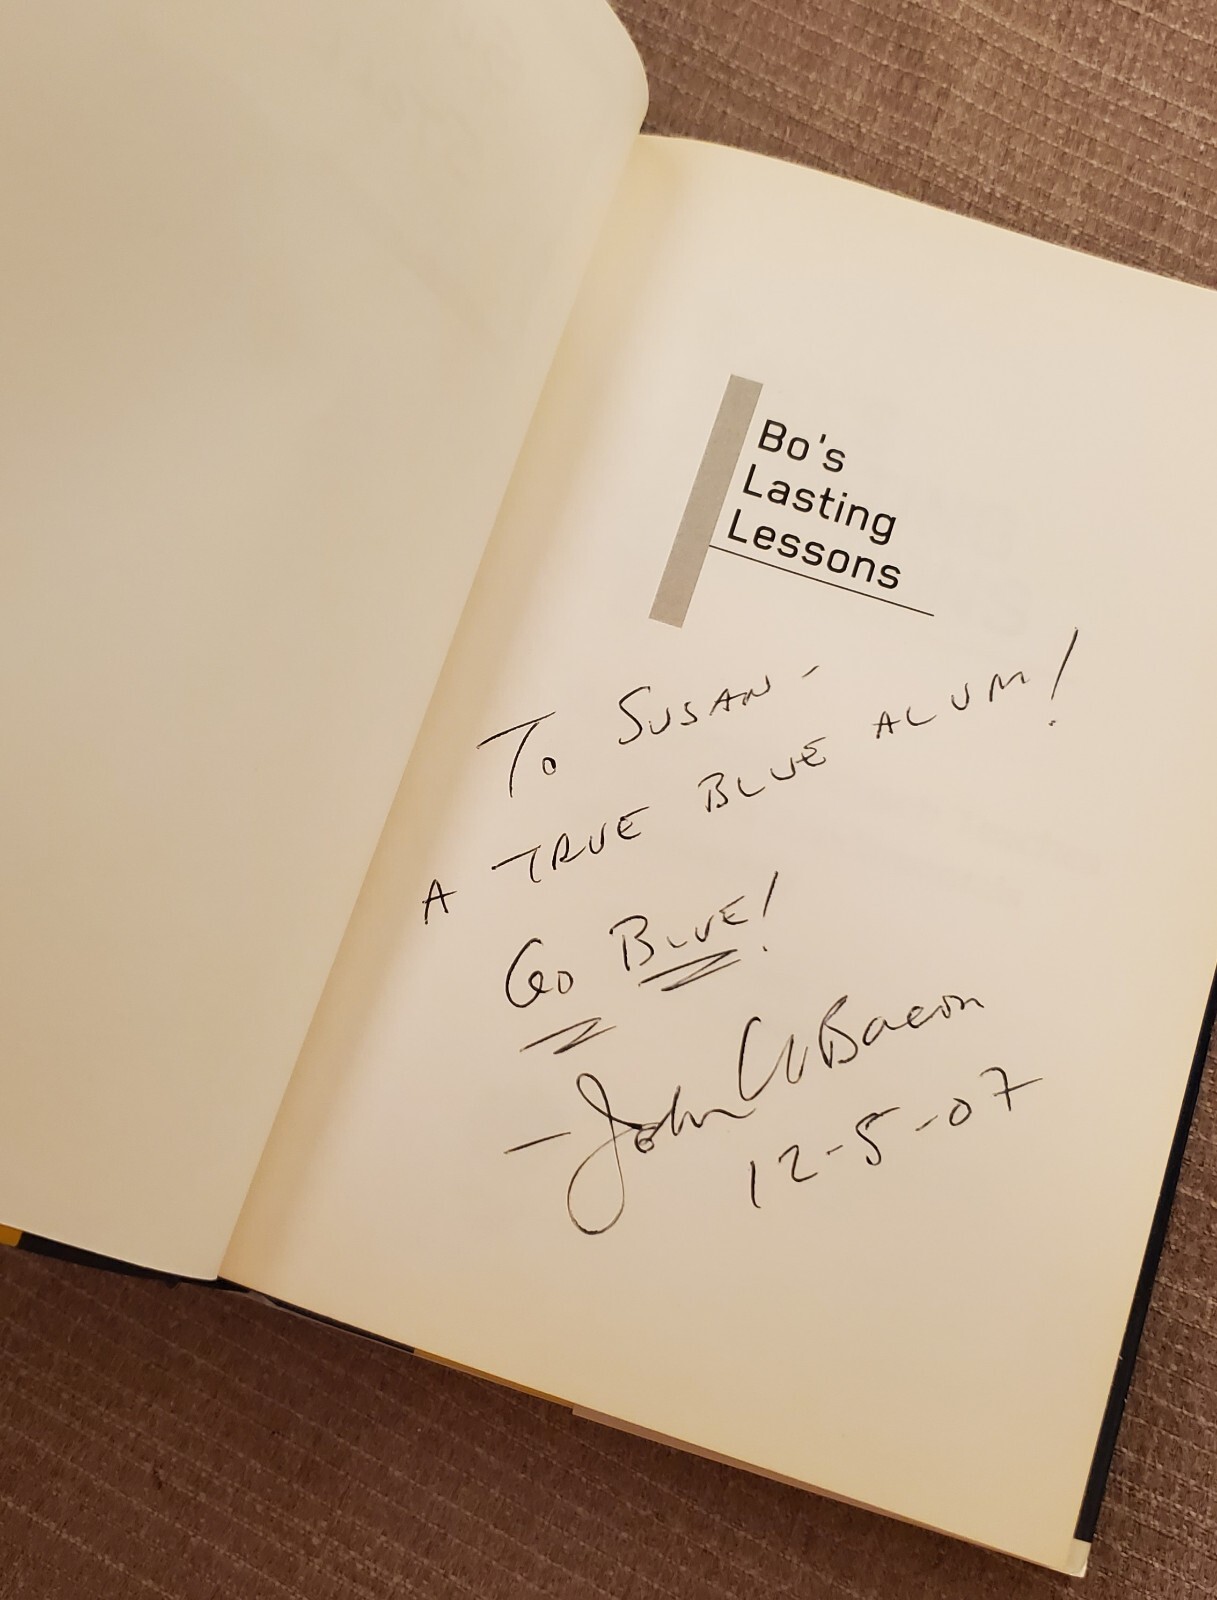 Bo's
Lasting
Lessons
To SUSAN -
A TRUE BLUE ALUM!
Go BLUE!
- John U Bacon
12-5-07